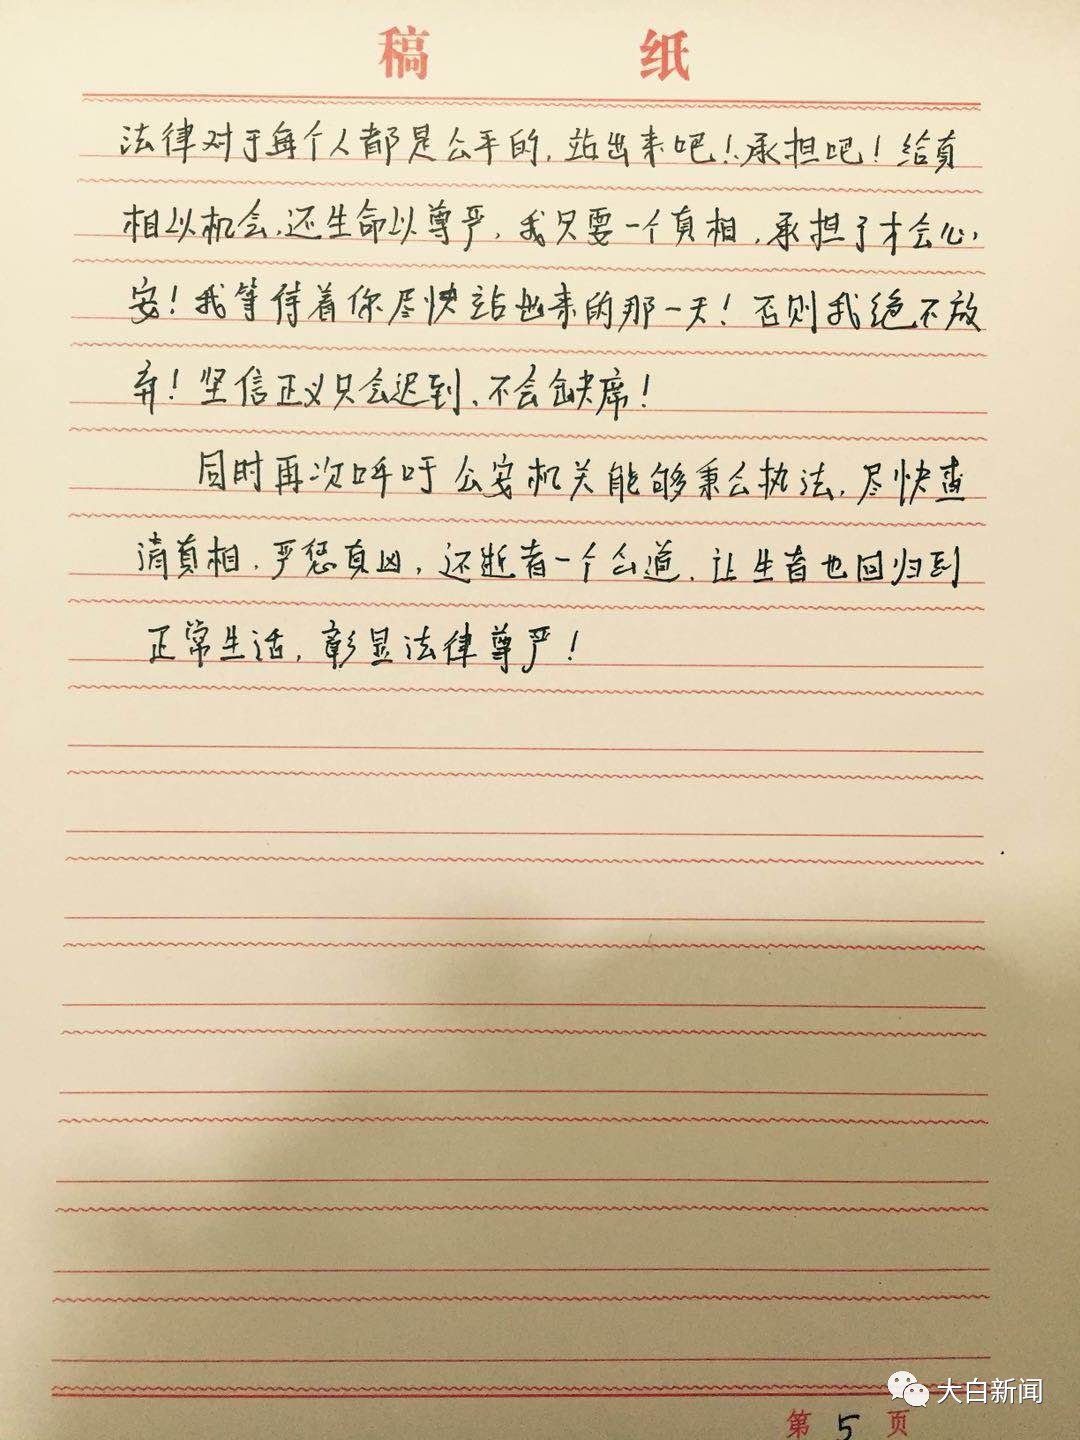 稿 纸
法律对于每个人都是公平的，站出来吧！承担吧！给真
相以机会，还生命以尊严，我只要一个真相，承担了才会心
安！我等待着你尽快站出来的那一天！否则我绝不放
弃！坚信正义只会迟到、不会缺席！
同时再次呼吁公安机关能够秉公执法，尽快查
清真相，严惩真凶，还逝者一个公道，让生者也回归到
正常生活，彰显法律尊严！
大白新闻
第 5 页